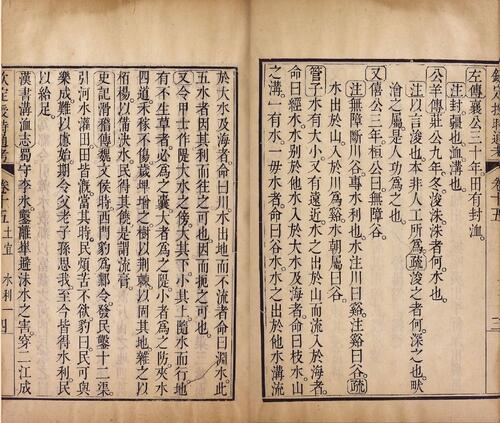 左傳襄公三十年田有封洫。
注封疆也洫溝也。
公羊傳莊公九年冬。浚洙洙者何。水也。
注以言浚也本非人工所為疏浚之者何。深之也畎
澮之屬是人功為之也。
又僖公三年。桓公曰。無障谷。
注無障斷川谷專水利也水注川曰谿。注谿曰谷疏
水出於山。入於川為谿水朝屬曰谷。
管子水有大小。又有遠近。水之出於山而流入於海者。
命曰經水。水別於他水入於大水及海者。命曰枝水。山
之溝。一有水。一毋水者。命曰谷水。水之出於他水溝流
於大水及海者。命曰川水。出地而不流者。命曰淵水。此
五水者。因其利而往之可也。因而扼之可也。
又令甲士作隄大水之傍。大其下。小其上。隨水而行。地
有不生草者。必為之囊。大者為之隄。小者為之防。夾水
四道禾稼不傷。歲埤增之。樹以荊棘。以固其地。雜之以
柏楊。以備決水。民得其饒。是謂流膏。
史記滑稽傳魏文侯時。西門豹為鄴令。發民鑿十二渠。
引河水灌田。田皆溉。當其時。民煩苦不欲。豹曰。民可與
樂成。難以慮始。期令父老子孫思我。至今皆得水利。民
以給足。
漢書溝洫志蜀守李氷鑿離堆避沫水之害。穿二江成
欽定授時通考 卷十五 土宜 水利一 四